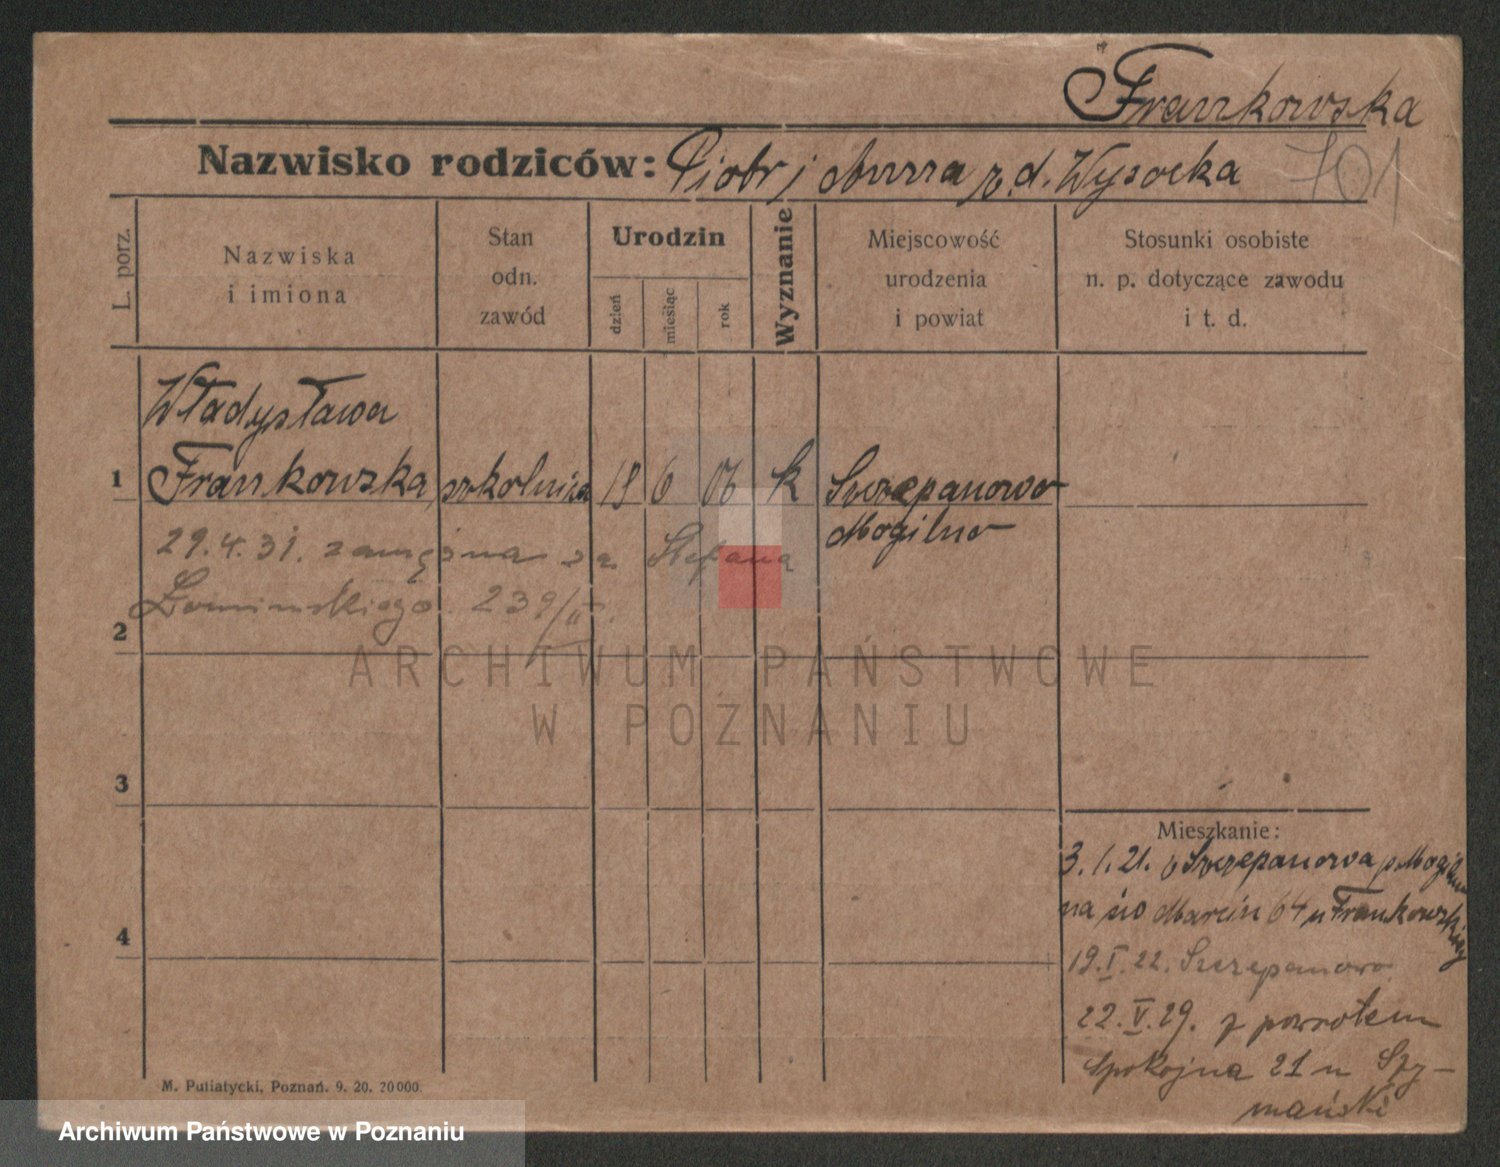 Frankowska
Nazwisko rodziców: Piotr i Anna z. d. Wysocka
701
L. porz.
Nazwiska
i imiona
Stan
odn.
zawód
Urodzin
dzień
miesiąc
rok
Wyznanie
Miejscowość
urodzenia
i powiat
Stosunki osobiste
n. p. dotyczące zawodu
i t. d.
Władysława
1 Frankowska, szkolnica 18 6 06 k Szczepanowo
Mogilno
29.4.31. zamężna za Stefana
Łomińskiego. 239/II.
2
3
4
Mieszkanie:
3.1.21. z Szczepanowa p. Mogilno
na św Marcin 64 u Frankowskiej
19.I.22. Szczepanowo
22.V.29. z powrotem
Spokojna 21 u Szy-
mański
M. Putiatycki, Poznań. 9. 20. 20000.
ARCHIWUM PAŃSTWOWE
W POZNANIU
Archiwum Państwowe w Poznaniu